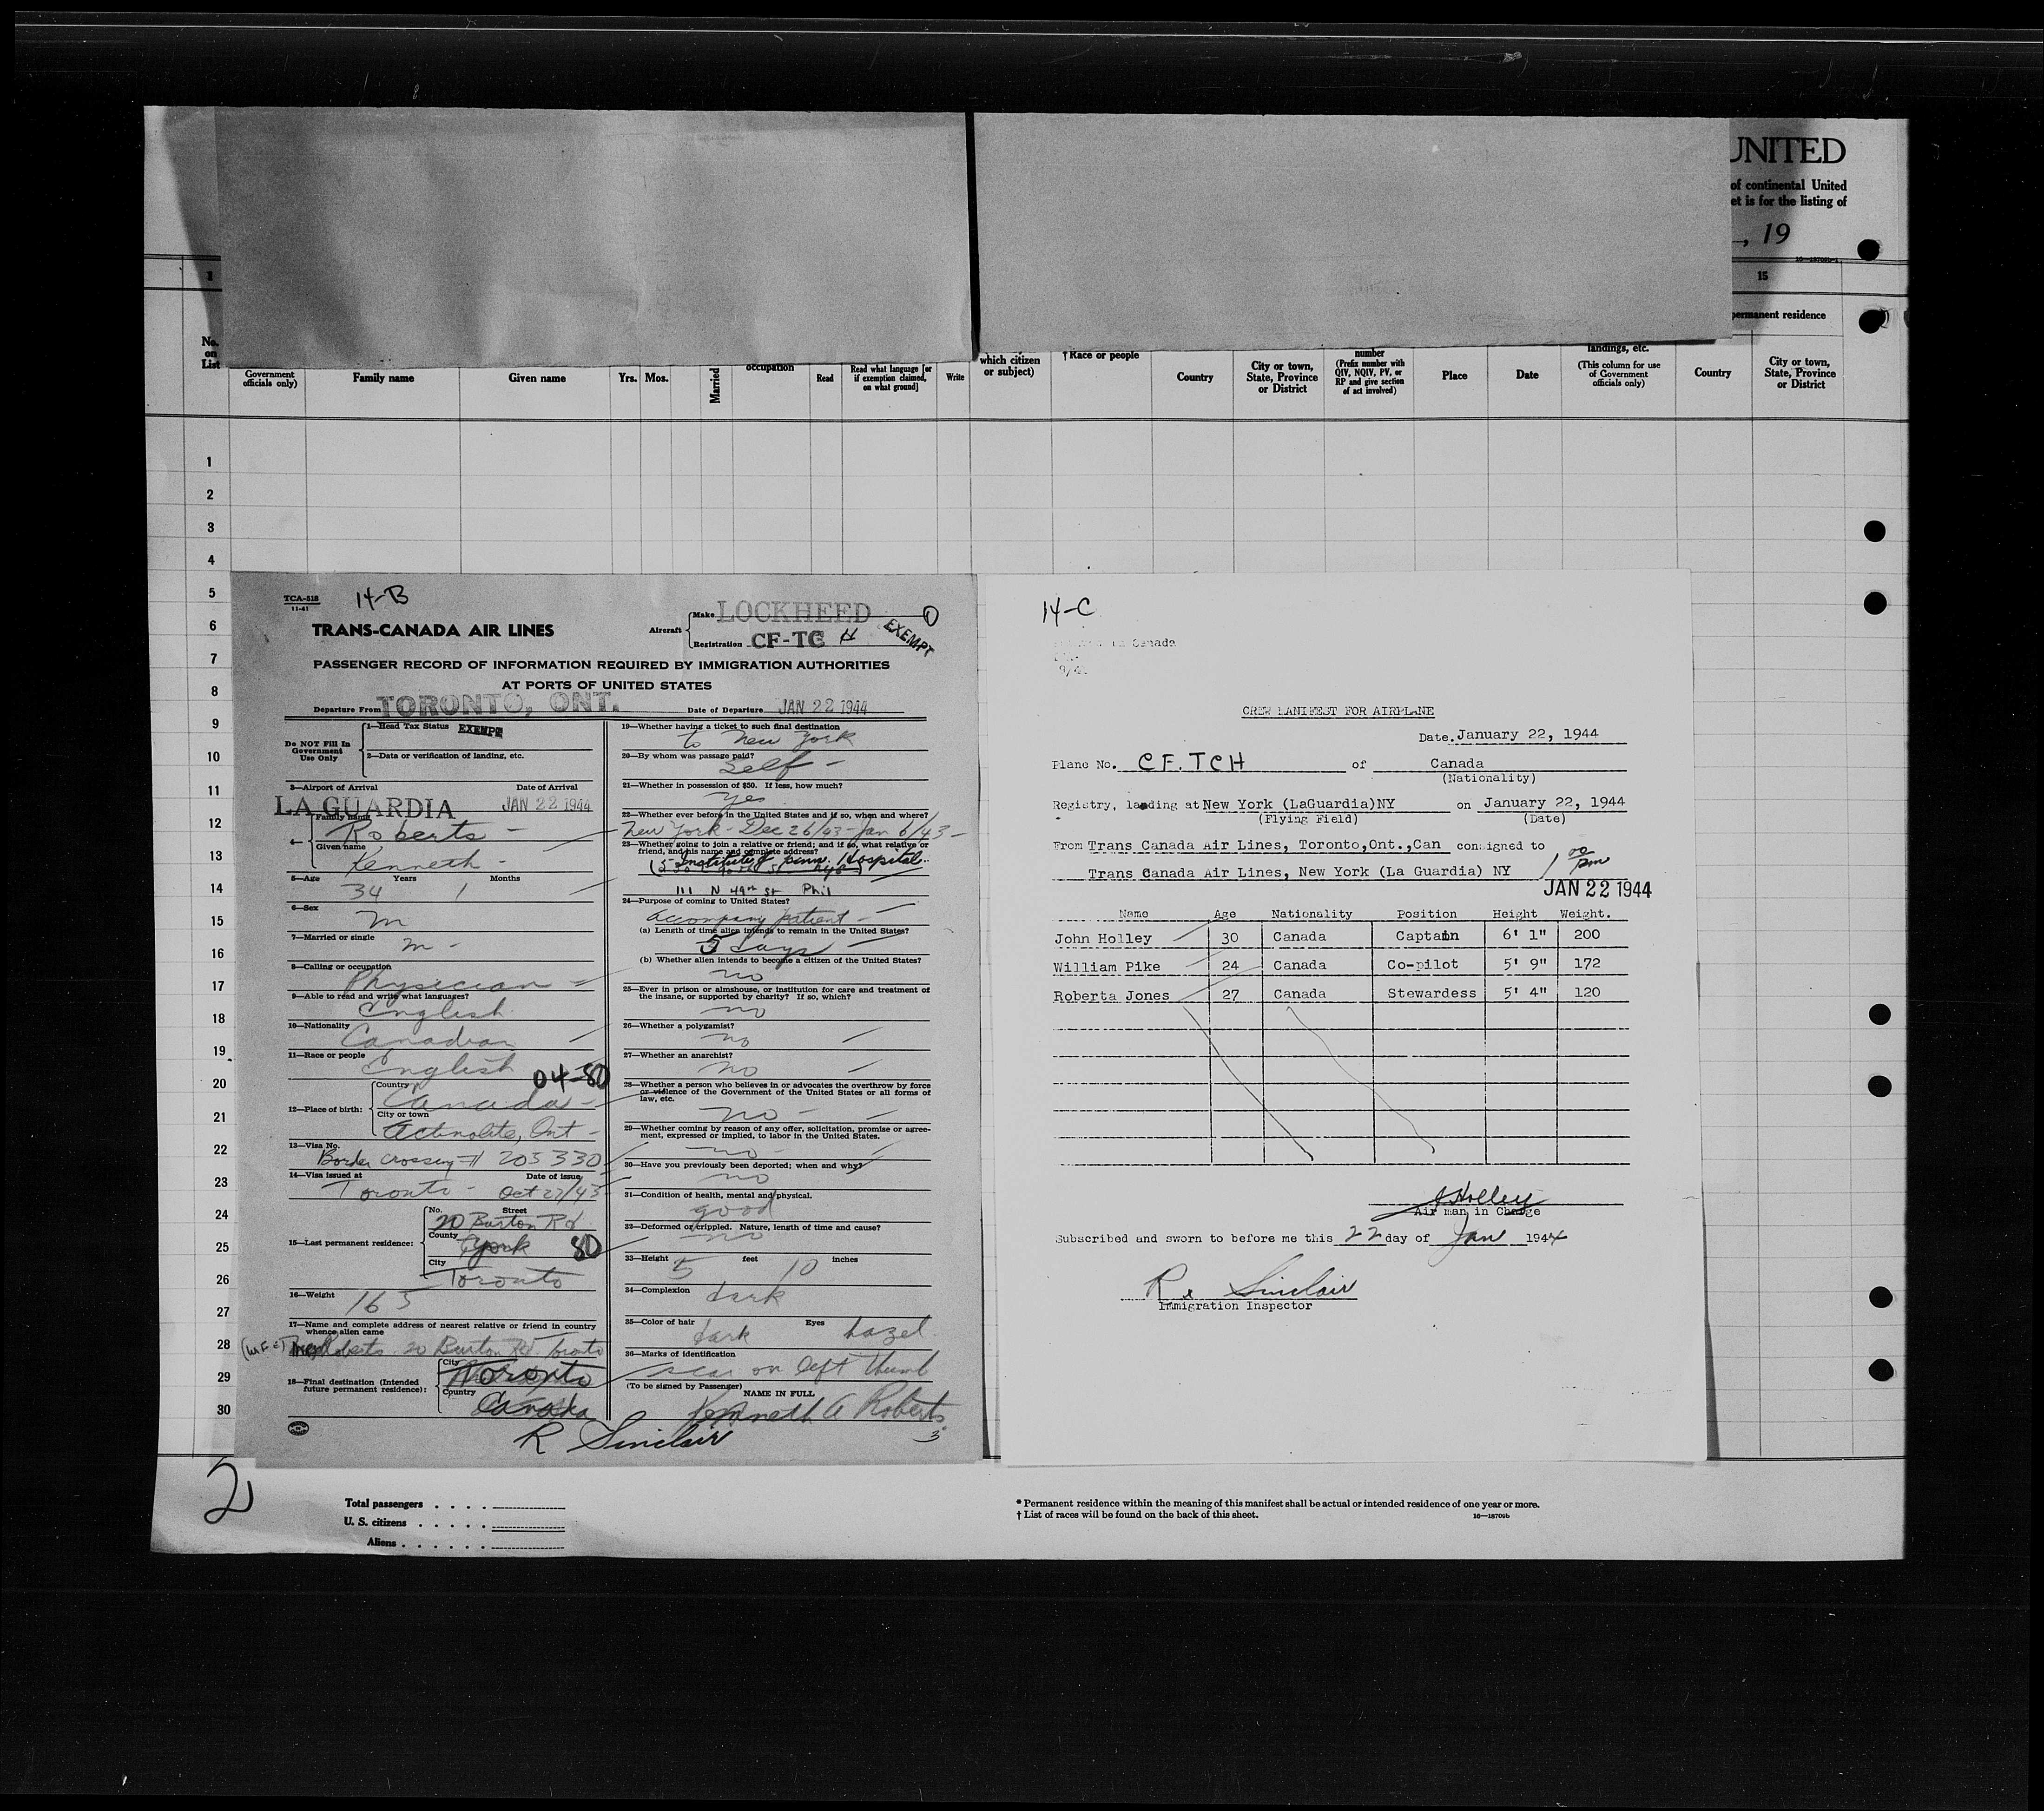 UNITED
of continental United
et is for the listing of
, 19
1
15
permanent residence
No.
on
List
Government
officials only)
Family name
Given name
Yrs.
Mos.
Married
occupation
Read
Read what language [or
if exemption claimed,
on what ground]
Write
which citizen
or subject)
†Race or people
Country
City or town,
State, Province
or District
number
(Prefix number with
QIV, NQIV, PV, or
RP and give section
of act involved)
Place
Date
landings, etc.
(This column for use
of Government
officials only)
Country
City or town,
State, Province
or District
1
2
3
4
5
6
7
8
9
10
11
12
13
14
15
16
17
18
19
20
21
22
23
24
25
26
27
28
29
30
TCA-518
11-41
14-B
TRANS-CANADA AIR LINES
Aircraft
Make LOCKHEED
Registration CF-TC H
EXEMPT
PASSENGER RECORD OF INFORMATION REQUIRED BY IMMIGRATION AUTHORITIES
AT PORTS OF UNITED STATES
Departure From TORONTO, ONT.
Date of Departure JAN 22 1944
Do NOT Fill In
Government
Use Only
1—Head Tax Status EXEMPT
2—Data or verification of landing, etc.
3—Airport of Arrival
Date of Arrival
LA GUARDIA
JAN 22 1944
4—
Family name
Roberts -
Given name
Kenneth -
5—Age Years Months
34 1
6—Sex
M
7—Married or single
M -
8—Calling or occupation
Physician -
9—Able to read and write what languages?
English
10—Nationality
Canadian
11—Race or people
English
04-80
12—Place of birth:
Country
Canada -
City or town
Actinolite, Ont -
13—Visa No.
Border crossing # 205330
14—Visa issued at
Date of issue
Toronto - Oct 27/43
15—Last permanent residence:
No. Street
20 Burton Rd
County
York 80
City
Toronto
16—Weight
165
17—Name and complete address of nearest relative or friend in country
whence alien came
Roberts 20 Burton Rd. Toronto
18—Final destination (Intended
future permanent residence):
City
Toronto
Country
Canada
R Sinclair
19—Whether having a ticket to such final destination
to New York
20—By whom was passage paid?
Self -
21—Whether in possession of $50. If less, how much?
Yes
22—Whether ever before in the United States and if so, when and where?
New York - Dec 26/43 - Jan 6/43 -
23—Whether going to join a relative or friend; and if so, what relative or
friend, and his name and complete address?
Institute of Penn. Hospital
111 N 49th St Phil
24—Purpose of coming to United States?
accompany patient -
(a) Length of time alien intends to remain in the United States?
5 days
(b) Whether alien intends to become a citizen of the United States?
no
25—Ever in prison or almshouse, or institution for care and treatment of
the insane, or supported by charity? If so, which?
no
26—Whether a polygamist?
no
27—Whether an anarchist?
no
28—Whether a person who believes in or advocates the overthrow by force
or violence of the Government of the United States or all forms of
law, etc.
no -
29—Whether coming by reason of any offer, solicitation, promise or agree-
ment, expressed or implied, to labor in the United States.
no -
30—Have you previously been deported; when and why?
no
31—Condition of health, mental and physical.
good
32—Deformed or crippled. Nature, length of time and cause?
no
33—Height feet inches
5 10
34—Complexion
dark
35—Color of hair Eyes
dark hazel
36—Marks of identification
scar on left thumb
(To be signed by Passenger)
NAME IN FULL
Kenneth A Roberts
3
14-C
Canada
CREW MANIFEST FOR AIRPLANE
Date. January 22, 1944
Plane No. CF.TCH of Canada
(Nationality)
Registry, landing at New York (LaGuardia)NY on January 22, 1944
(Flying Field) (Date)
From Trans Canada Air Lines, Toronto,Ont.,Can consigned to
Trans Canada Air Lines, New York (La Guardia) NY
1 00 pm
JAN 22 1944
Name Age Nationality Position Height Weight.
John Holley 30 Canada Captain 6' 1" 200
William Pike 24 Canada Co-pilot 5' 9" 172
Roberta Jones 27 Canada Stewardess 5' 4" 120
J Holley
Air man in Charge
Subscribed and sworn to before me this 22 day of Jan 1944
R. Sinclair
Immigration Inspector
2
Total passengers . . . .
U. S. citizens . . . . .
Aliens . . . . . .
* Permanent residence within the meaning of this manifest shall be actual or intended residence of one year or more.
† List of races will be found on the back of this sheet.
16—18706b